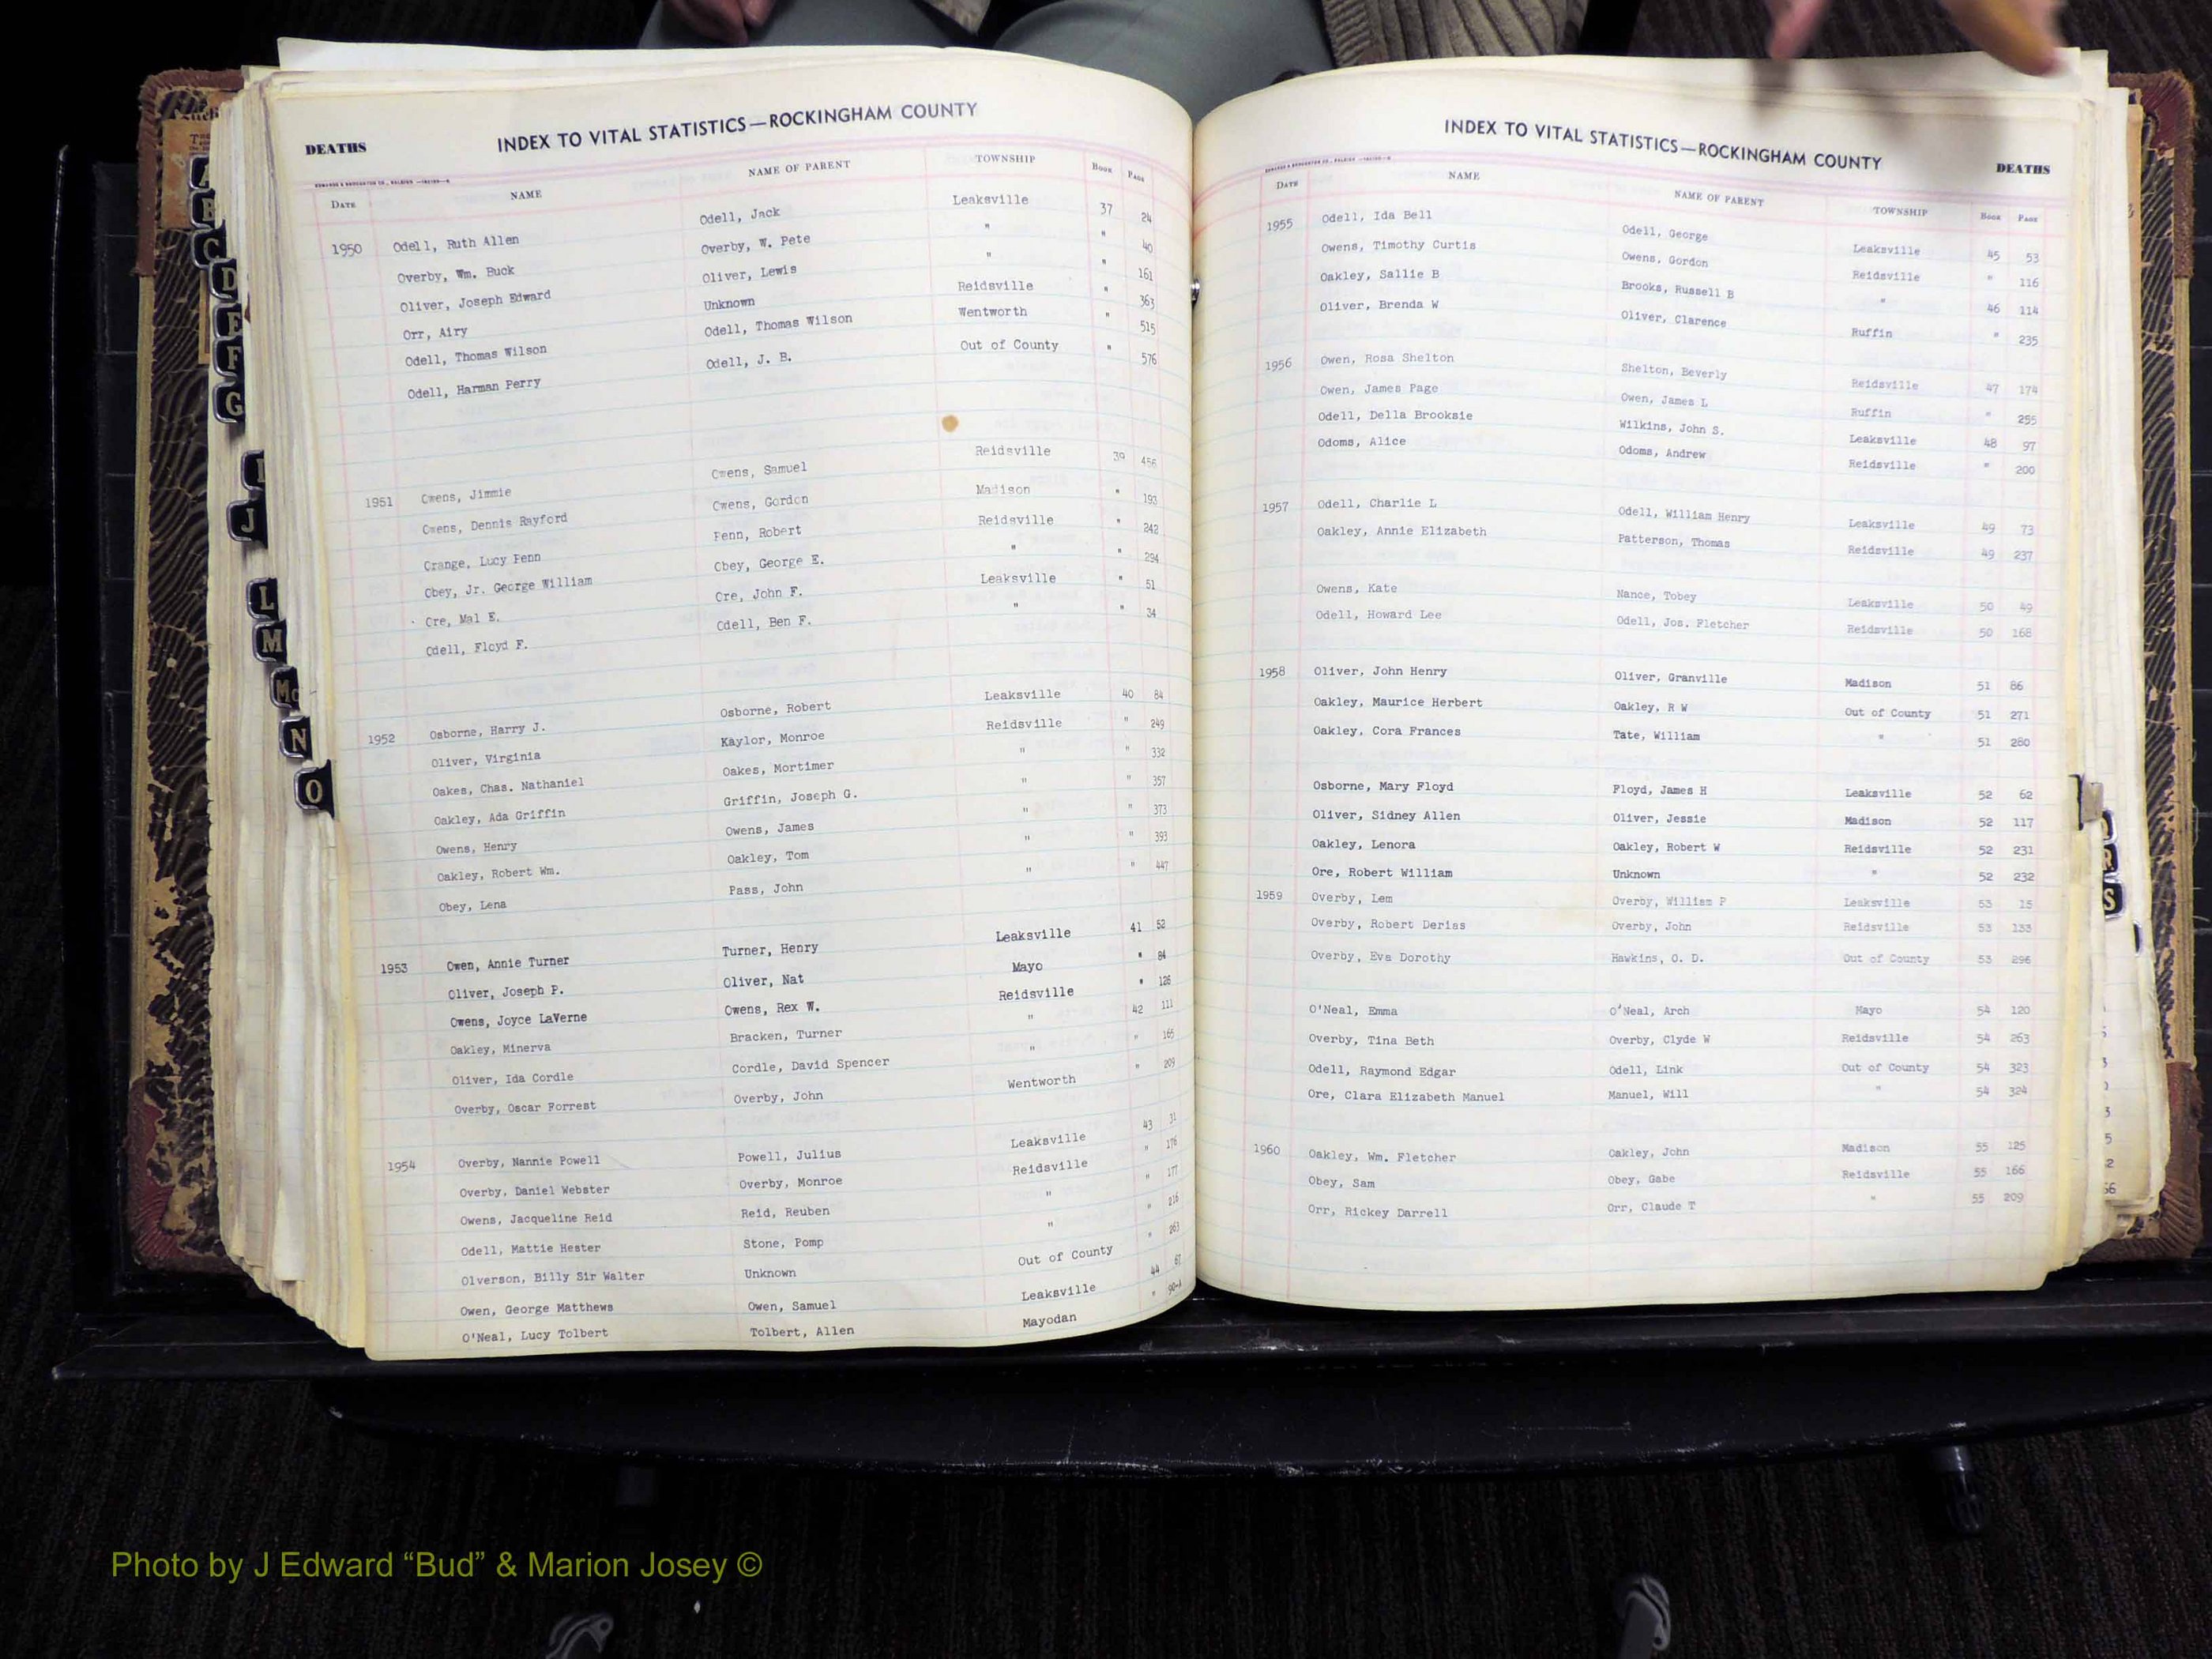 DEATHS INDEX TO VITAL STATISTICS—ROCKINGHAM COUNTY
DATE NAME NAME OF PARENT TOWNSHIP BOOK PAGE
1950 Odell, Ruth Allen Odell, Jack Leaksville 37 24
Overby, Wm. Buck Overby, W. Pete " " 40
Oliver, Joseph Edward Oliver, Lewis " " 161
Orr, Airy Unknown Reidsville " 363
Odell, Thomas Wilson Odell, Thomas Wilson Wentworth " 515
Odell, Harman Perry Odell, J. B. Out of County " 576
1951 Owens, Jimmie Owens, Samuel Reidsville 39 456
Owens, Dennis Rayford Owens, Gordon Madison " 193
Orange, Lucy Penn Penn, Robert Reidsville " 242
Obey, Jr. George William Obey, George E. " " 294
Ore, Mal E. Ore, John F. Leaksville " 51
Odell, Floyd F. Odell, Ben F. " " 34
1952 Osborne, Harry J. Osborne, Robert Leaksville 40 84
Oliver, Virginia Kaylor, Monroe Reidsville " 249
Oakes, Chas. Nathaniel Oakes, Mortimer " " 332
Oakley, Ada Griffin Griffin, Joseph G. " " 357
Owens, Henry Owens, James " " 373
Oakley, Robert Wm. Oakley, Tom " " 393
Obey, Lena Pass, John " " 447
1953 Owen, Annie Turner Turner, Henry Leaksville 41 52
Oliver, Joseph P. Oliver, Nat Mayo " 84
Owens, Joyce LaVerne Owens, Rex W. Reidsville " 126
Oakley, Minerva Bracken, Turner " 42 111
Oliver, Ida Cordle Cordle, David Spencer " " 165
Overby, Oscar Forrest Overby, John Wentworth " 209
1954 Overby, Nannie Powell Powell, Julius Leaksville 43 31
Overby, Daniel Webster Overby, Monroe Reidsville " 176
Owens, Jacqueline Reid Reid, Reuben " " 177
Odell, Mattie Hester Stone, Pomp " " 216
Olverson, Billy Sir Walter Unknown Out of County " 263
Owen, George Matthews Owen, Samuel Leaksville 44 67
O'Neal, Lucy Tolbert Tolbert, Allen Mayodan " 90-A
INDEX TO VITAL STATISTICS—ROCKINGHAM COUNTY DEATHS
DATE NAME NAME OF PARENT TOWNSHIP BOOK PAGE
1955 Odell, Ida Bell Odell, George Leaksville 45 53
Owens, Timothy Curtis Owens, Gordon Reidsville " 116
Oakley, Sallie B Brooks, Russell B " 46 114
Oliver, Brenda W Oliver, Clarence Ruffin " 235
1956 Owen, Rosa Shelton Shelton, Beverly Reidsville 47 174
Owen, James Page Owen, James L Ruffin " 255
Odell, Della Brooksie Wilkins, John S. Leaksville 48 97
Odoms, Alice Odoms, Andrew Reidsville " 200
1957 Odell, Charlie L Odell, William Henry Leaksville 49 73
Oakley, Annie Elizabeth Patterson, Thomas Reidsville 49 237
Owens, Kate Nance, Tobey Leaksville 50 49
Odell, Howard Lee Odell, Jos. Fletcher Reidsville 50 168
1958 Oliver, John Henry Oliver, Granville Madison 51 86
Oakley, Maurice Herbert Oakley, R W Out of County 51 271
Oakley, Cora Frances Tate, William " 51 280
Osborne, Mary Floyd Floyd, James H Leaksville 52 62
Oliver, Sidney Allen Oliver, Jessie Madison 52 117
Oakley, Lenora Oakley, Robert W Reidsville 52 231
Ore, Robert William Unknown " 52 232
1959 Overby, Lem Overby, William P Leaksville 53 15
Overby, Robert Derias Overby, John Reidsville 53 133
Overby, Eva Dorothy Hawkins, O. D. Out of County 53 296
O'Neal, Emma O'Neal, Arch Mayo 54 120
Overby, Tina Beth Overby, Clyde W Reidsville 54 263
Odell, Raymond Edgar Odell, Link Out of County 54 323
Ore, Clara Elizabeth Manuel Manuel, Will " 54 324
1960 Oakley, Wm. Fletcher Oakley, John Madison 55 125
Obey, Sam Obey, Gabe Reidsville 55 166
Orr, Rickey Darrell Orr, Claude T " 55 209
A
B
C
D
E
F
G
I
J
L
M
Mc
N
O
R
S
Photo by J Edward “Bud” & Marion Josey ©